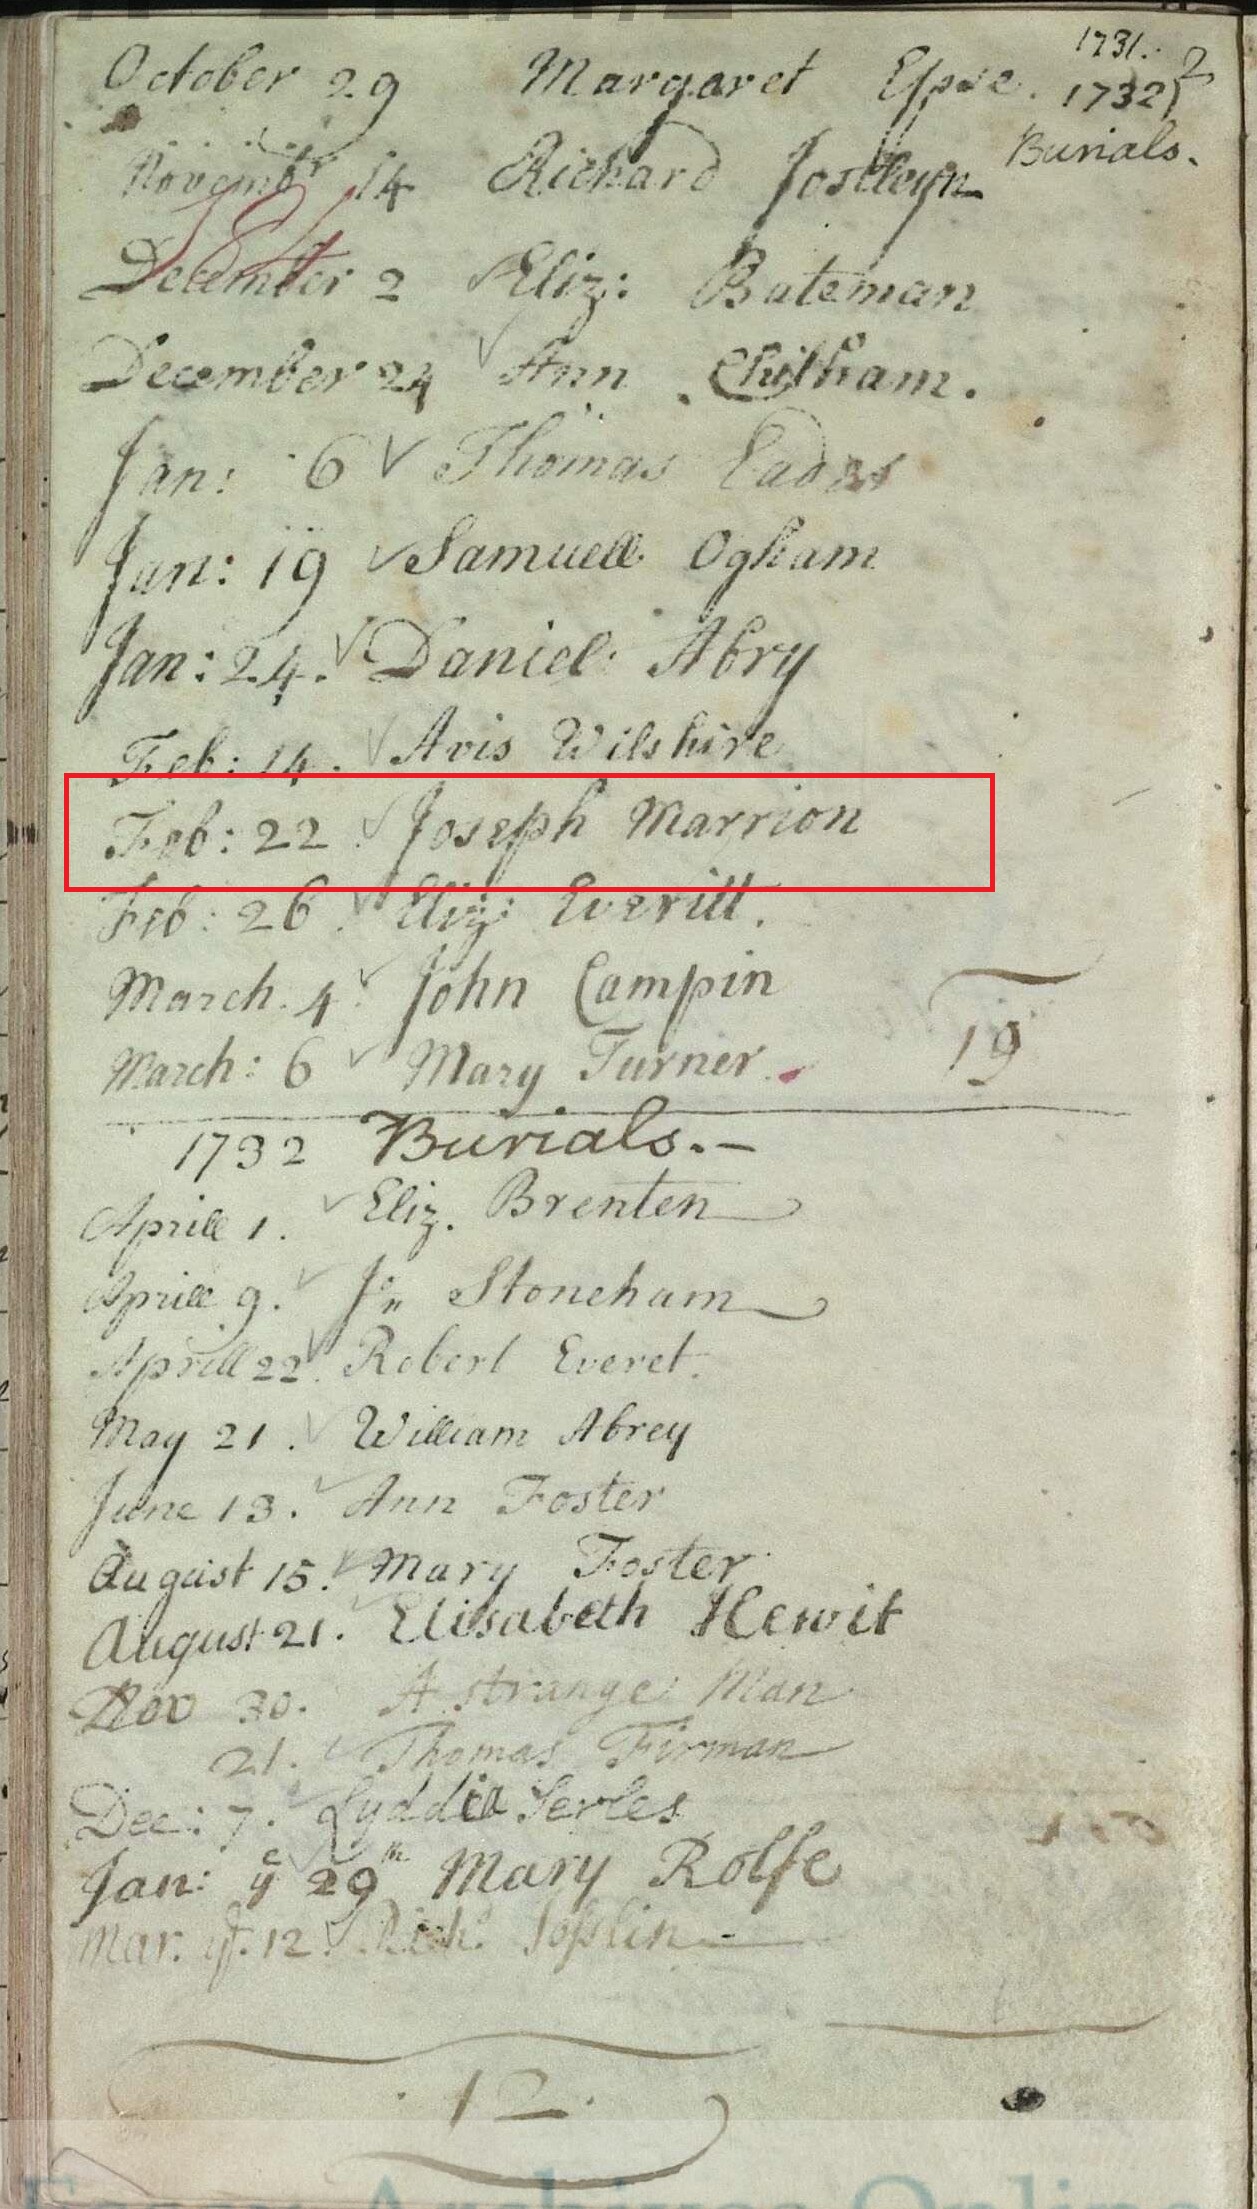 1731.
October 29 Margaret 1732
Burials.
14 Richard Joscleyn
December 2 Eliz: Bateman
December 24 Ann Chilham.
Jan: 6 Thomas
Jan: 19 Samuell Ogham
Jan: 24. Daniel Abry
Feb: 14. Avis Wilshire
Feb: 22 Joseph Marrion
Feb: 26. Eliz: Everitt.
March. 4. John Campin
19
March: 6 Mary Turner.
1732 Burials.-
Aprill 1. Eliz. Brenten
Aprill 9. Jn Stoneham
Aprill 22. Robert Everet.
May 21. William Abrey
June 13. Ann Foster
August 15. Mary Foster
August 21. Elisabeth Hewit
Nov 30. A strange Man
21. Thomas Firman
Dec: 7. Lyddia Serles
Jan: ye 29th Mary Rolfe
Mar. ye. 12. Rich. Joslin
12.
Essex Archives Online